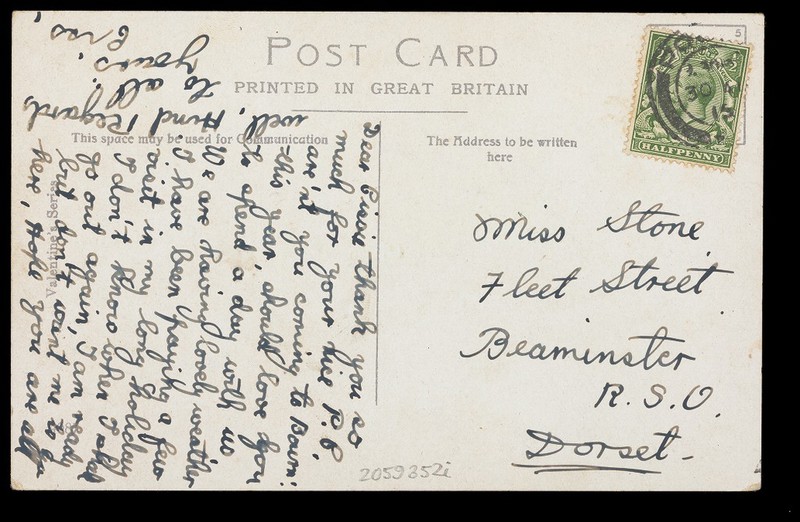 POST CARD
PRINTED IN GREAT BRITAIN
This space may be used for Communication
The Address to be written
here
5
HALFPENNY
30
Valentine's Series
Dear Cissie thank you so
much for your nice P.C
are'nt you coming to Bourn:
this year, should love you
to spend a day with us
We are having lovely weather
I have been paying a few
visit in my long holiday
I don't know when I shall
go out again, I am ready
but don't want me to
here, Hope you are all
well, Kind Regards
to all.
Yours,
Miss Stone
Fleet Street
Beaminster
R.S.O.
Dorset-
2059352i